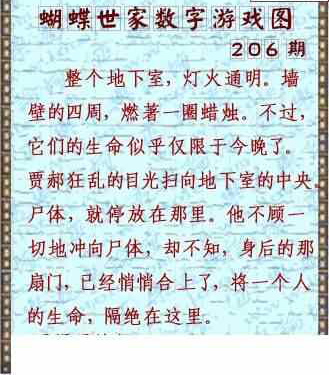 蝴蝶世家数字游戏图
206期
整个地下室，灯火通明。墙
壁的四周，燃著一圈蜡烛。不过，
它们的生命似乎仅限于今晚了。
贾郝狂乱的目光扫向地下室的中央。
尸体，就停放在那里。他不顾一
切地冲向尸体，却不知，身后的那
扇门，已经悄悄合上了，将一个人
的生命，隔绝在这里。